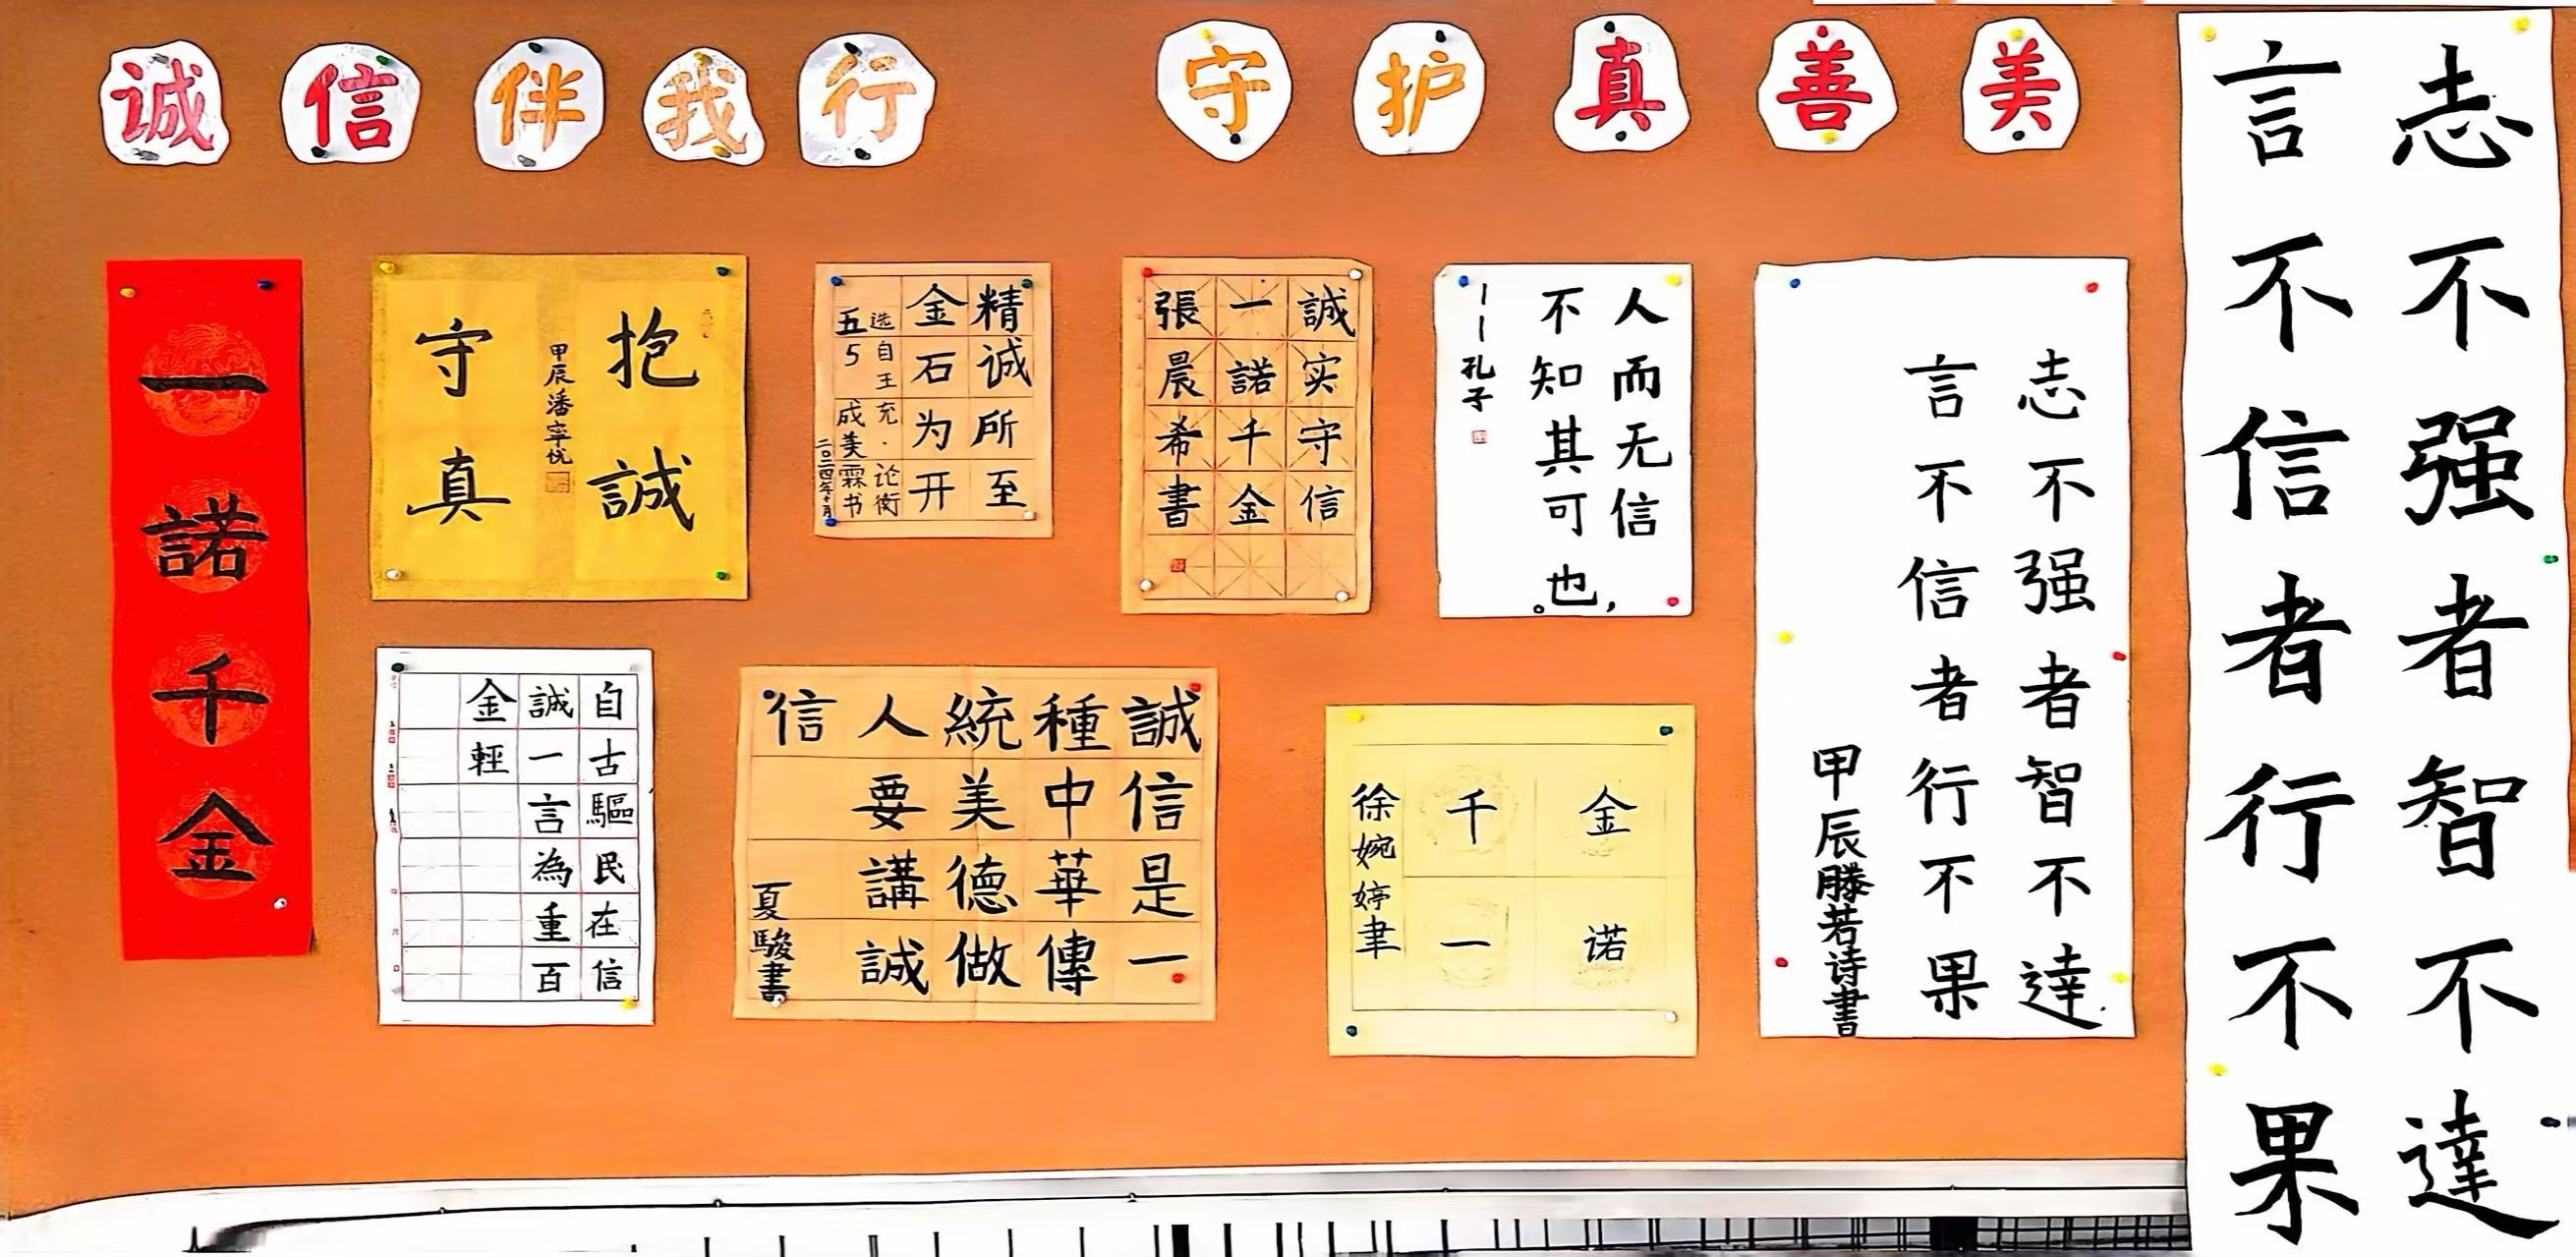 诚信伴我行
守护真善美
一諾千金
抱誠
甲辰潘寧悦
守真
精诚所至
金石为开
选自王充·论衡
五5 成美霖书
二〇二四年十月
誠实守信
一諾千金
張晨希書
人而无信，
不知其可也。
——孔子
志不强者智不達
言不信者行不果
甲辰滕若诗書
志不强者智不達
言不信者行不果
自古驅民在信
誠一言為重百
金輕
誠信是一
種中華傳
統美德做
人要講誠
信
夏駿書
金诺
千一
徐婉婷聿